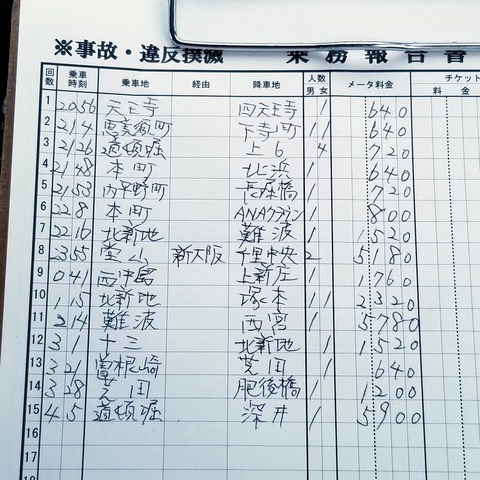 ※事故・違反撲滅 乗務報告書
回数 乗車時刻 乗車地 経由 降車地 人数 男 女 メータ料金 チケット 料 金
1 2056 天王寺 四天王寺 1 1 640
2 214 恵美須町 下寺町 1 1 640
3 2126 道頓堀 上6 4 720
4 2148 本町 北浜 1 640
5 2153 内平野町 長堀橋 1 720
6 228 本町 ANAクラウン 1 800
7 2216 北新地 難波 1 1520
8 2355 堂山 新大阪 千里中央 2 5180
9 041 西中島 上新庄 1 1760
10 115 北新地 塚本 1 1 2320
11 214 難波 西宮 1 5780
12 31 十三 北新地 1 1520
13 321 曽根崎 芝田 1 640
14 328 芝田 肥後橋 1 1200
15 45 道頓堀 深井 1 5900
16
17